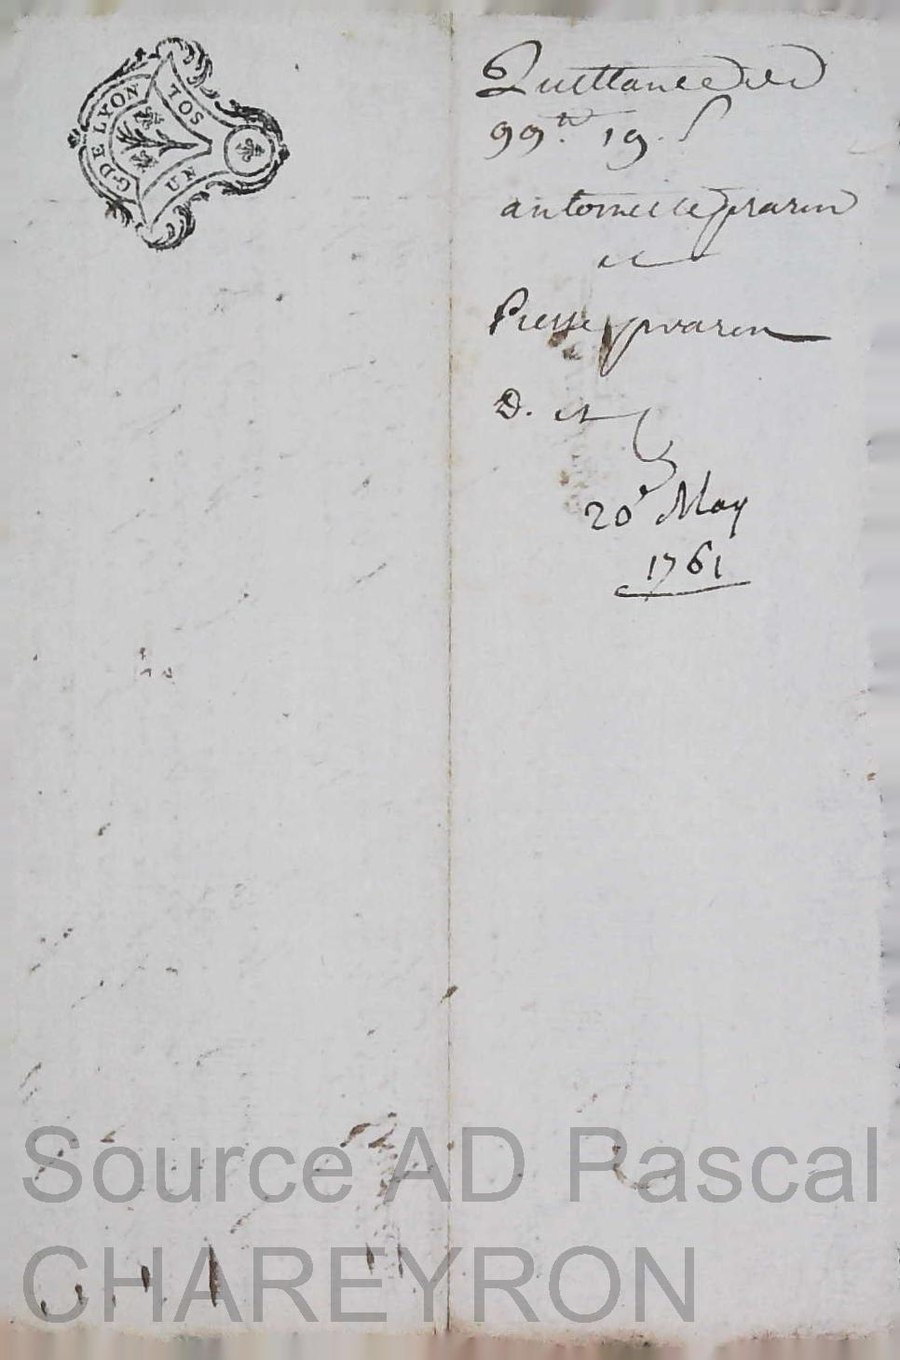 G. DE LYON
UN SOL
Quittance de
99ᵗᵗ. 19. s
antoinette prarin
et
Pierre prarin
D. et
20ᵉ May
1761
Source AD Pascal
CHAREYRON